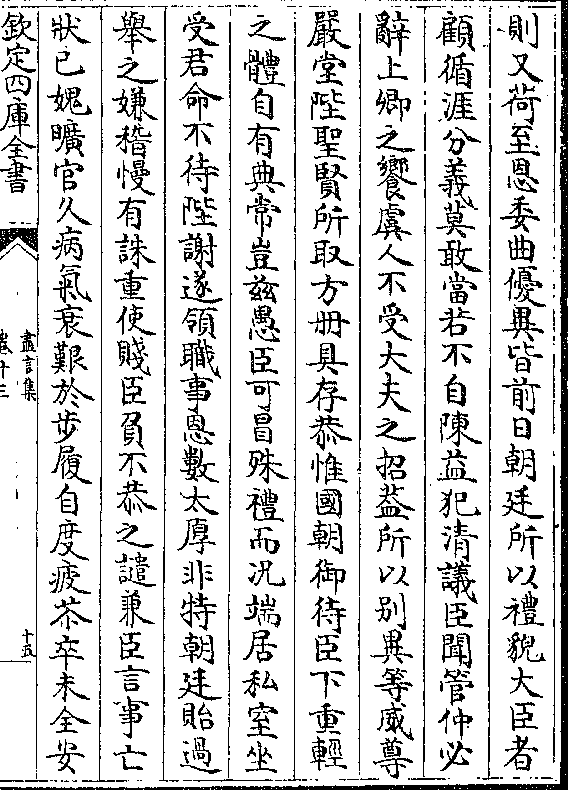 則又荷至恩委曲優異皆前日朝廷所以禮貌大臣者
顧循涯分義莫敢當若不自陳益犯清議臣聞管仲必
辭上卿之饗虞人不受大夫之招葢所以别異等威尊
嚴堂陛聖賢所取方册具存恭惟國朝御待臣下重輕
之體自有典常豈兹愚臣可冒殊禮而况端居私室坐
受君命不待陛謝遂領職事恩數太厚非特朝廷貽過
舉之嫌稽慢有誅重使賤臣負不恭之譴兼臣言事亡
狀已媿曠官久病氣衰艱於步履自度疲苶卒未全安
欽定四庫全書
盡言集
卷十三
十五